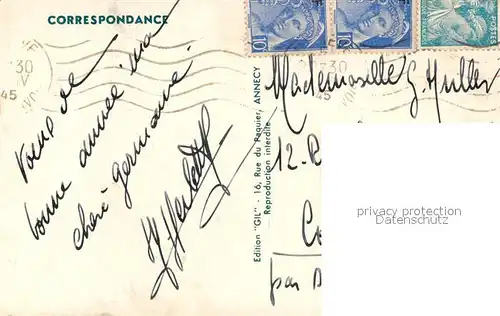 CORRESPONDANCE
30
45
45
10
10
POSTES
Vœux de
bonne année ma
chère germaine.
Edition "GIL" - 16, Rue du Paquier, ANNECY
Reproduction interdite
Mademoiselle G Muller
12-R
Co
par
privacy protection
Datenschutz